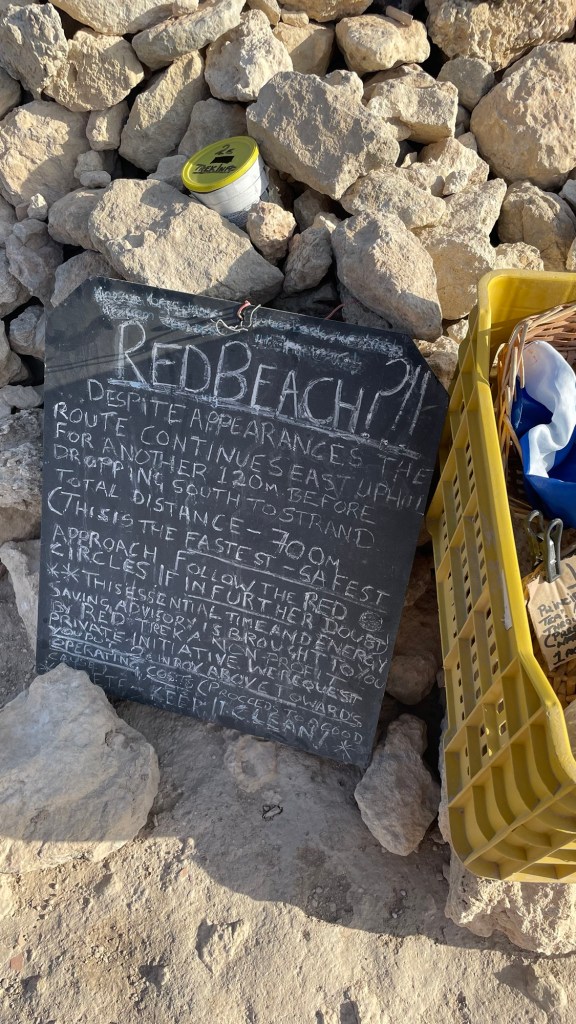 2€
RED BEACH?!!
DESPITE APPEARANCES THE
ROUTE CONTINUES EAST UPHILL
FOR ANOTHER 120m BEFORE
DROPPING SOUTH TO STRAND
TOTAL DISTANCE - 700m
(THIS IS THE FASTEST - SAFEST
APPROACH FOLLOW THE RED
CIRCLES IF IN FURTHER DOUBT)
** THIS ESSENTIAL TIME AND ENERGY
SAVING ADVISORY IS BROUGHT TO YOU
BY RED TREK A NON PROFIT
PRIVATE INITIATIVE WE REQUEST
YOU PUT 2€ IN BOX ABOVE TOWARDS
OPERATING COSTS (PROCEEDS TO A GOOD
KEEP IT CLEAN!